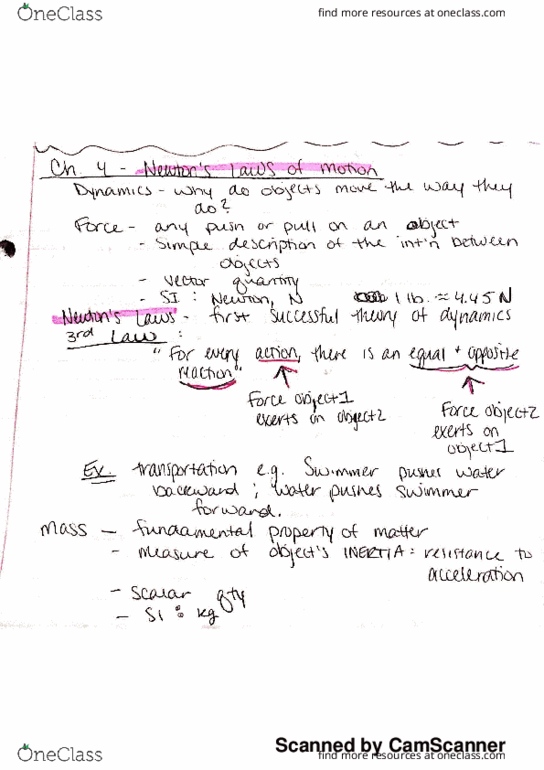 OneClass find more resources at oneclass.com
Ch. 4 - Newton's Laws of Motion
Dynamics - why do objects move the way they
do?
Force - any push or pull on an object
- Simple description of the int'n between
objects
- vector quantity
- SI : Newton, N 1 lb. ≈ 4.45 N
Newton's Laws - first successful theory of dynamics
3rd Law :
"For every action, there is an equal + opposite
reaction"
Force object 1
exerts on object 2
Force object 2
exerts on
object 1
Ex. transportation e.g. Swimmer pushes water
backward ; water pushes swimmer
forward.
Mass - fundamental property of matter
- measure of object's INERTIA : resistance to
acceleration
- scalar qty
- SI : kg
Scanned by CamScanner
OneClass find more resources at oneclass.com